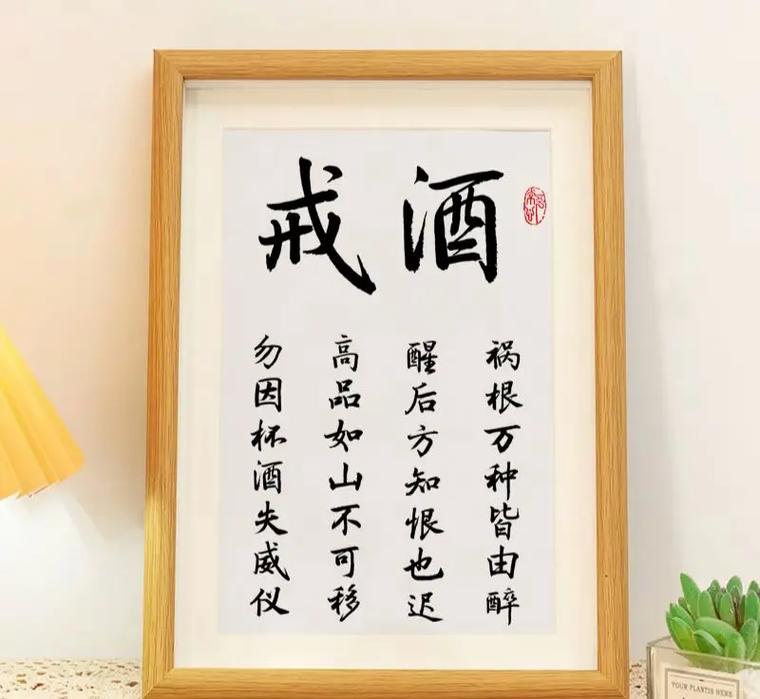 戒酒
祸根万种皆由醉
醒后方知恨也迟
高品如山不可移
勿因杯酒失威仪
YOUR PLANT IS HERE